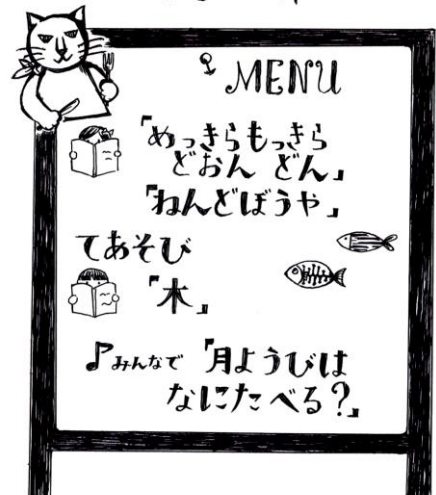 MENU
『めっきらもっきら
どおん どん』
『ねんどぼうや』
てあそび
『木』
♪みんなで『月ようびは
なにたべる?』